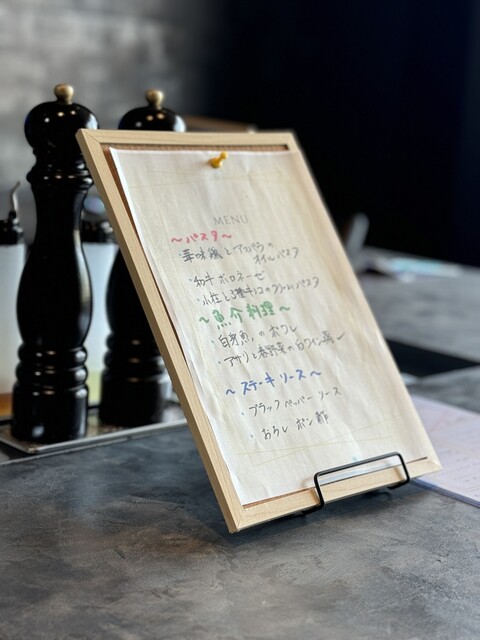 MENU
～パスタ～
・華味鳥とアスパラの
オイルパスタ
・和牛ボロネーゼ
・小柱と3種キノコのクリームパスタ
～魚介料理～
・白身魚のポワレ
・アサリと春野菜の白ワイン蒸し
～ステーキソース～
・ブラックペッパーソース
・おろしポン酢